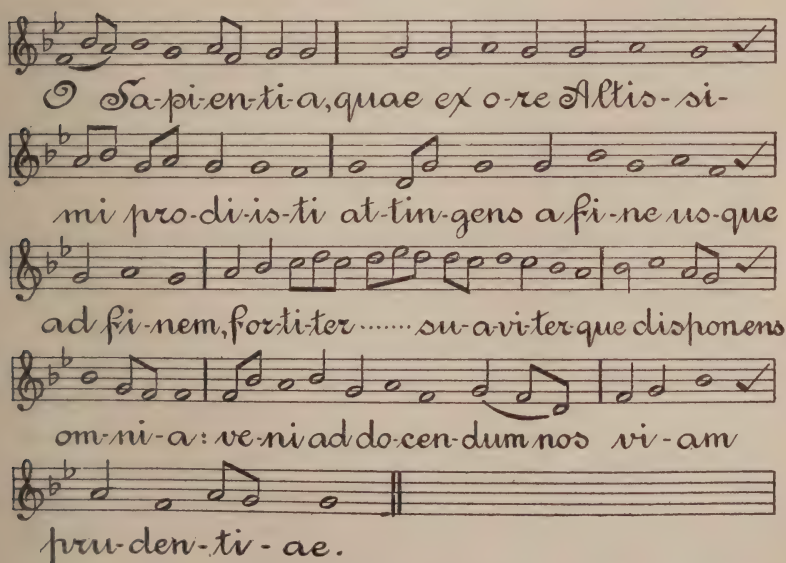 O Sa-pi-en-ti-a, quae ex o-re Altis-si-
mi pro-di-is-ti at-tin-gens a fi-ne us-que
ad fi-nem, for-ti-ter ...... su-a-vi-ter-que disponens
om-ni-a: ve-ni ad do-cen-dum nos vi-am
pru-den-ti-ae.